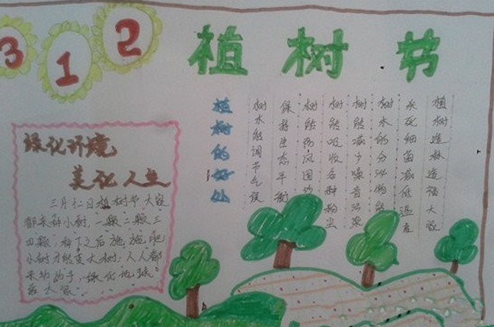 3 1 2
植树节
绿化环境
美化人生
三月12日植树节大家
都来种小树,一颗二颗三
四颗,种下之后施施肥
小树才能变大树,人人都
来动动手,绿化地球
为大家
植树的好处
树木能调节气候
保持生态平衡
树能防风固沙
树能吸收各种粉尘
树能减少噪音污染
树木的分泌物能
杀死细菌降低温度
植树造林造福大家